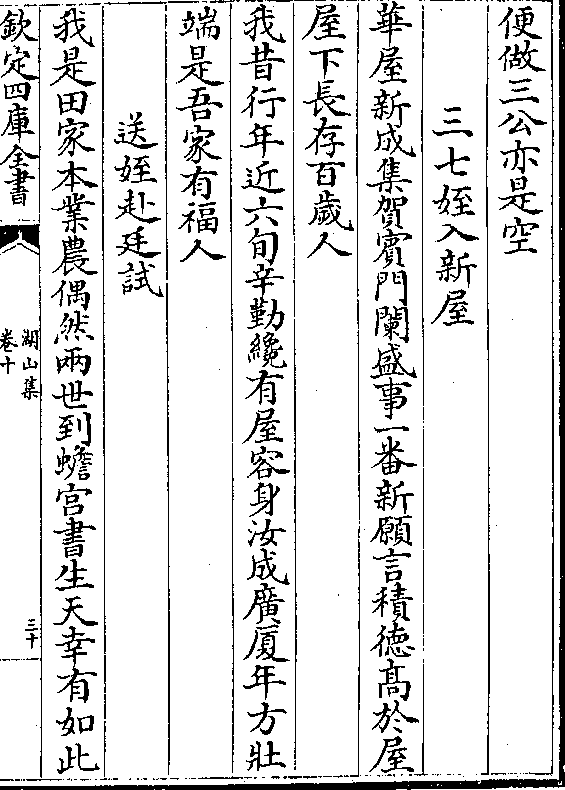 便做三公亦是空
三七姪入新屋
華屋新成集賀賓門闌盛事一番新願言積徳髙於屋
屋下長存百歲人
我昔行年近六旬辛勤纔有屋容身汝成廣厦年方壯
端是吾家有福人
送姪赴廷試
我是田家本業農偶然兩世到蟾宮書生天幸有如此
欽定四庫全書
湖山集
卷十
三十